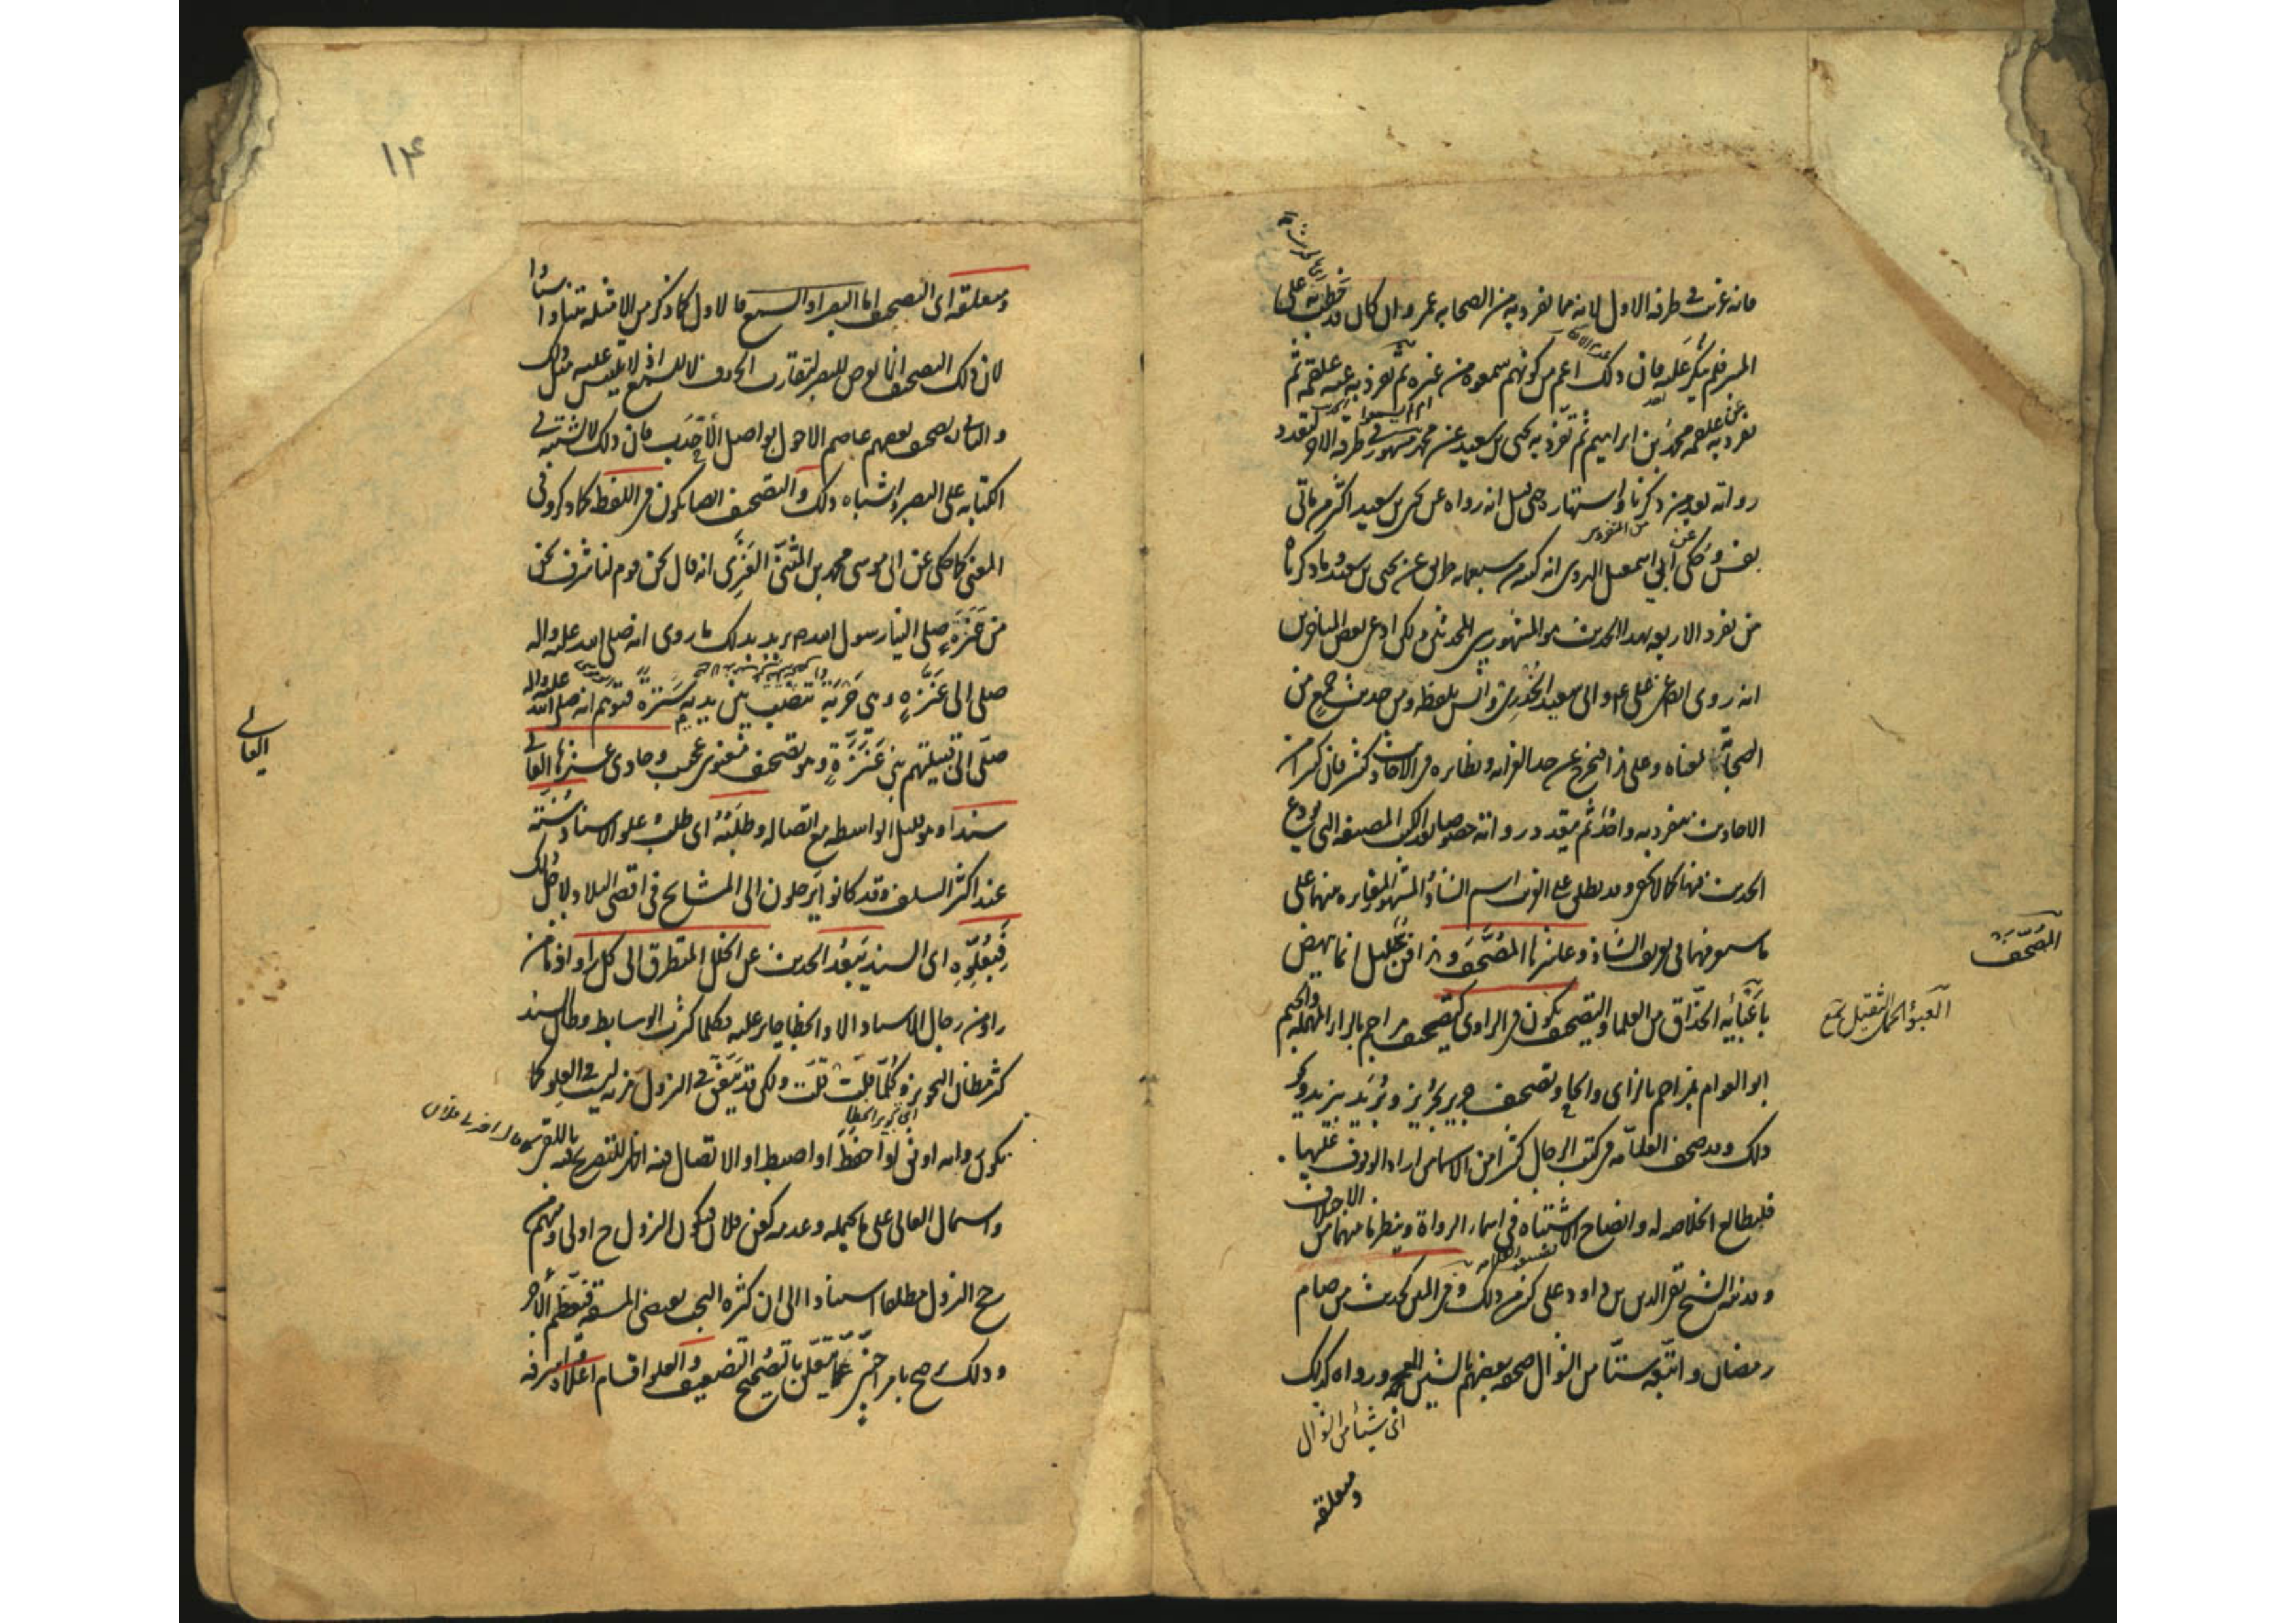 فانه غريب في طرفه الاول لانه مما تفرد به من الصحابه عمر وان كان قد خطب به على
المنبر فلم ينكر عليه فان ذلك اعم من كونهم سمعوه من غيره ثم تفرد به عنه علقمه ثم
تفرد به عن علقمه محمد بن ابراهيم ثم تفرد به يحيى بن سعيد عن محمد مشهور في طرفه الاخر لتعدد
رواته بعد من ذكرنا واشتهاره حتى قيل انه رواه عن يحيى بن سعيد اكثر من ماتى
نفس وحكى عن ابي اسمعيل الهروى انه كتبه من سبعمايه طريق عن يحيى بن سعيد وما ذكرناه
من تفرد الاربعه بهذا الحديث هو المشهور بين المحدثين ولكن ادعى بعض المتاخرين
انه روى ايضا عن على ع وابى سعيد الخدرى وانس بلفظه ومن حديث جمع من
الصحابة بمعناه وعلى هذا فيخرج عن حد الغرابه ونظايره في الاحاديث كثير فان كثيرا من
الاحاديث ينفرد به واحد ثم يتعدد رواته خصوصا بعد الكتب المصنفه التى يودع
الحديث فيها كما لا يخفى وقد يطلق على الغريب اسم الشاذ والمشهور المغايره بينهما على
ما سيوقفها في تعريف الشاذ وعاشرها المصحف وهذا فن جليل انما ينهض
باعبائه الحذاق من العلما والتصحيف يكون في الراوى كتصحيف مراجم بالراء المهمله والجيم
ابو العوام بمزاحم بالزاى والحاء وتصحيف حريز بجرير وبريد بيزيد ونحو
ذلك وقد صحف العلامه في كتب الرجال كثيرا من الاسامى من اراد الوقوف عليها
فليطالع الخلاصه له وايضاح الاشتباه في اسماء الرواة وينظر ما بينهما من الاختلاف
وقد نبه الشيخ تقى الدين بن داود على كثير من ذلك وفي المتن كحديث من صام
رمضان واتبعه ستا من شوال صحفه بعضهم بالشين المعجمه ورواه كذلك
اى شيئا من شوال
ومتعلقه
المصحف
العبؤ الحمل الثقيل جمع
١٤
ومتعلقه اى التصحيف اما البصر او السمع فالاول كما ذكر من الامثله متنا واسنادا
لان ذلك التصحيف انما يعرض للبصر لتقارب الحروف لا للسمع اذ لا يلتبس عليه مثل ذلك
والثانى كتصحيف بعضهم عاصم الاحول بواصل الاحدب فان ذلك لا يشتبه في
الكتابه على البصر واشباه ذلك والتصحيف ايضا يكون في اللفظ كما ذكر وفى
المعنى كما حكى عن ابى موسى محمد بن المثنى العنزى انه قال نحن قوم لنا شرف نحن
من عنزة صلى الينا رسول الله ص يريد بذلك ما روى انه صلى الله عليه واله
صلى الى عنزة وهى حربة تنصب بين يديه سترة فتوهم انه صلى الله عليه واله
صلى الى قبيلتهم بنى عنزة وهو تصحيف معنوى عجيب وحادى عشرها العالى
سندا وهو قليل الواسطه مع اتصاله وطلبه اى طلب علو الاسناد سنة
عند اكثر السلف وقد كانوا يرحلون الى المشايخ فى اقصى البلاد لاجل ذلك
فبعلوه اى السند يبعد الحديث عن الخلل المتطرق الى كل راو اذ ما من
راو من رجال الاسناد الا والخطا جايز عليه فكلما كثرت الوسايط وطال السند
كثر مظان التجويز وكلما قلت قلت ولكن قد يتفق في النزول مزيه ليست في العلو كما
اى تجويز الخطا
يكون رواته اوثق او احفظ او اضبط او الاتصال فيه اظهر للتصريح فيه باللقى
واشتمال العالى على ما يحتمله وعدمه كعن فلان فيكون النزول ح اولى ومنهم من
رجح النزول مطلقا استنادا الى ان كثره البحث يقتضى المشقه فيعظم الاجر
وذلك ترجيح بامر اجنبى عما يتعلق بالتصحيح والتضعيف والعلو اقسام اعلاه واشرفه
العالى